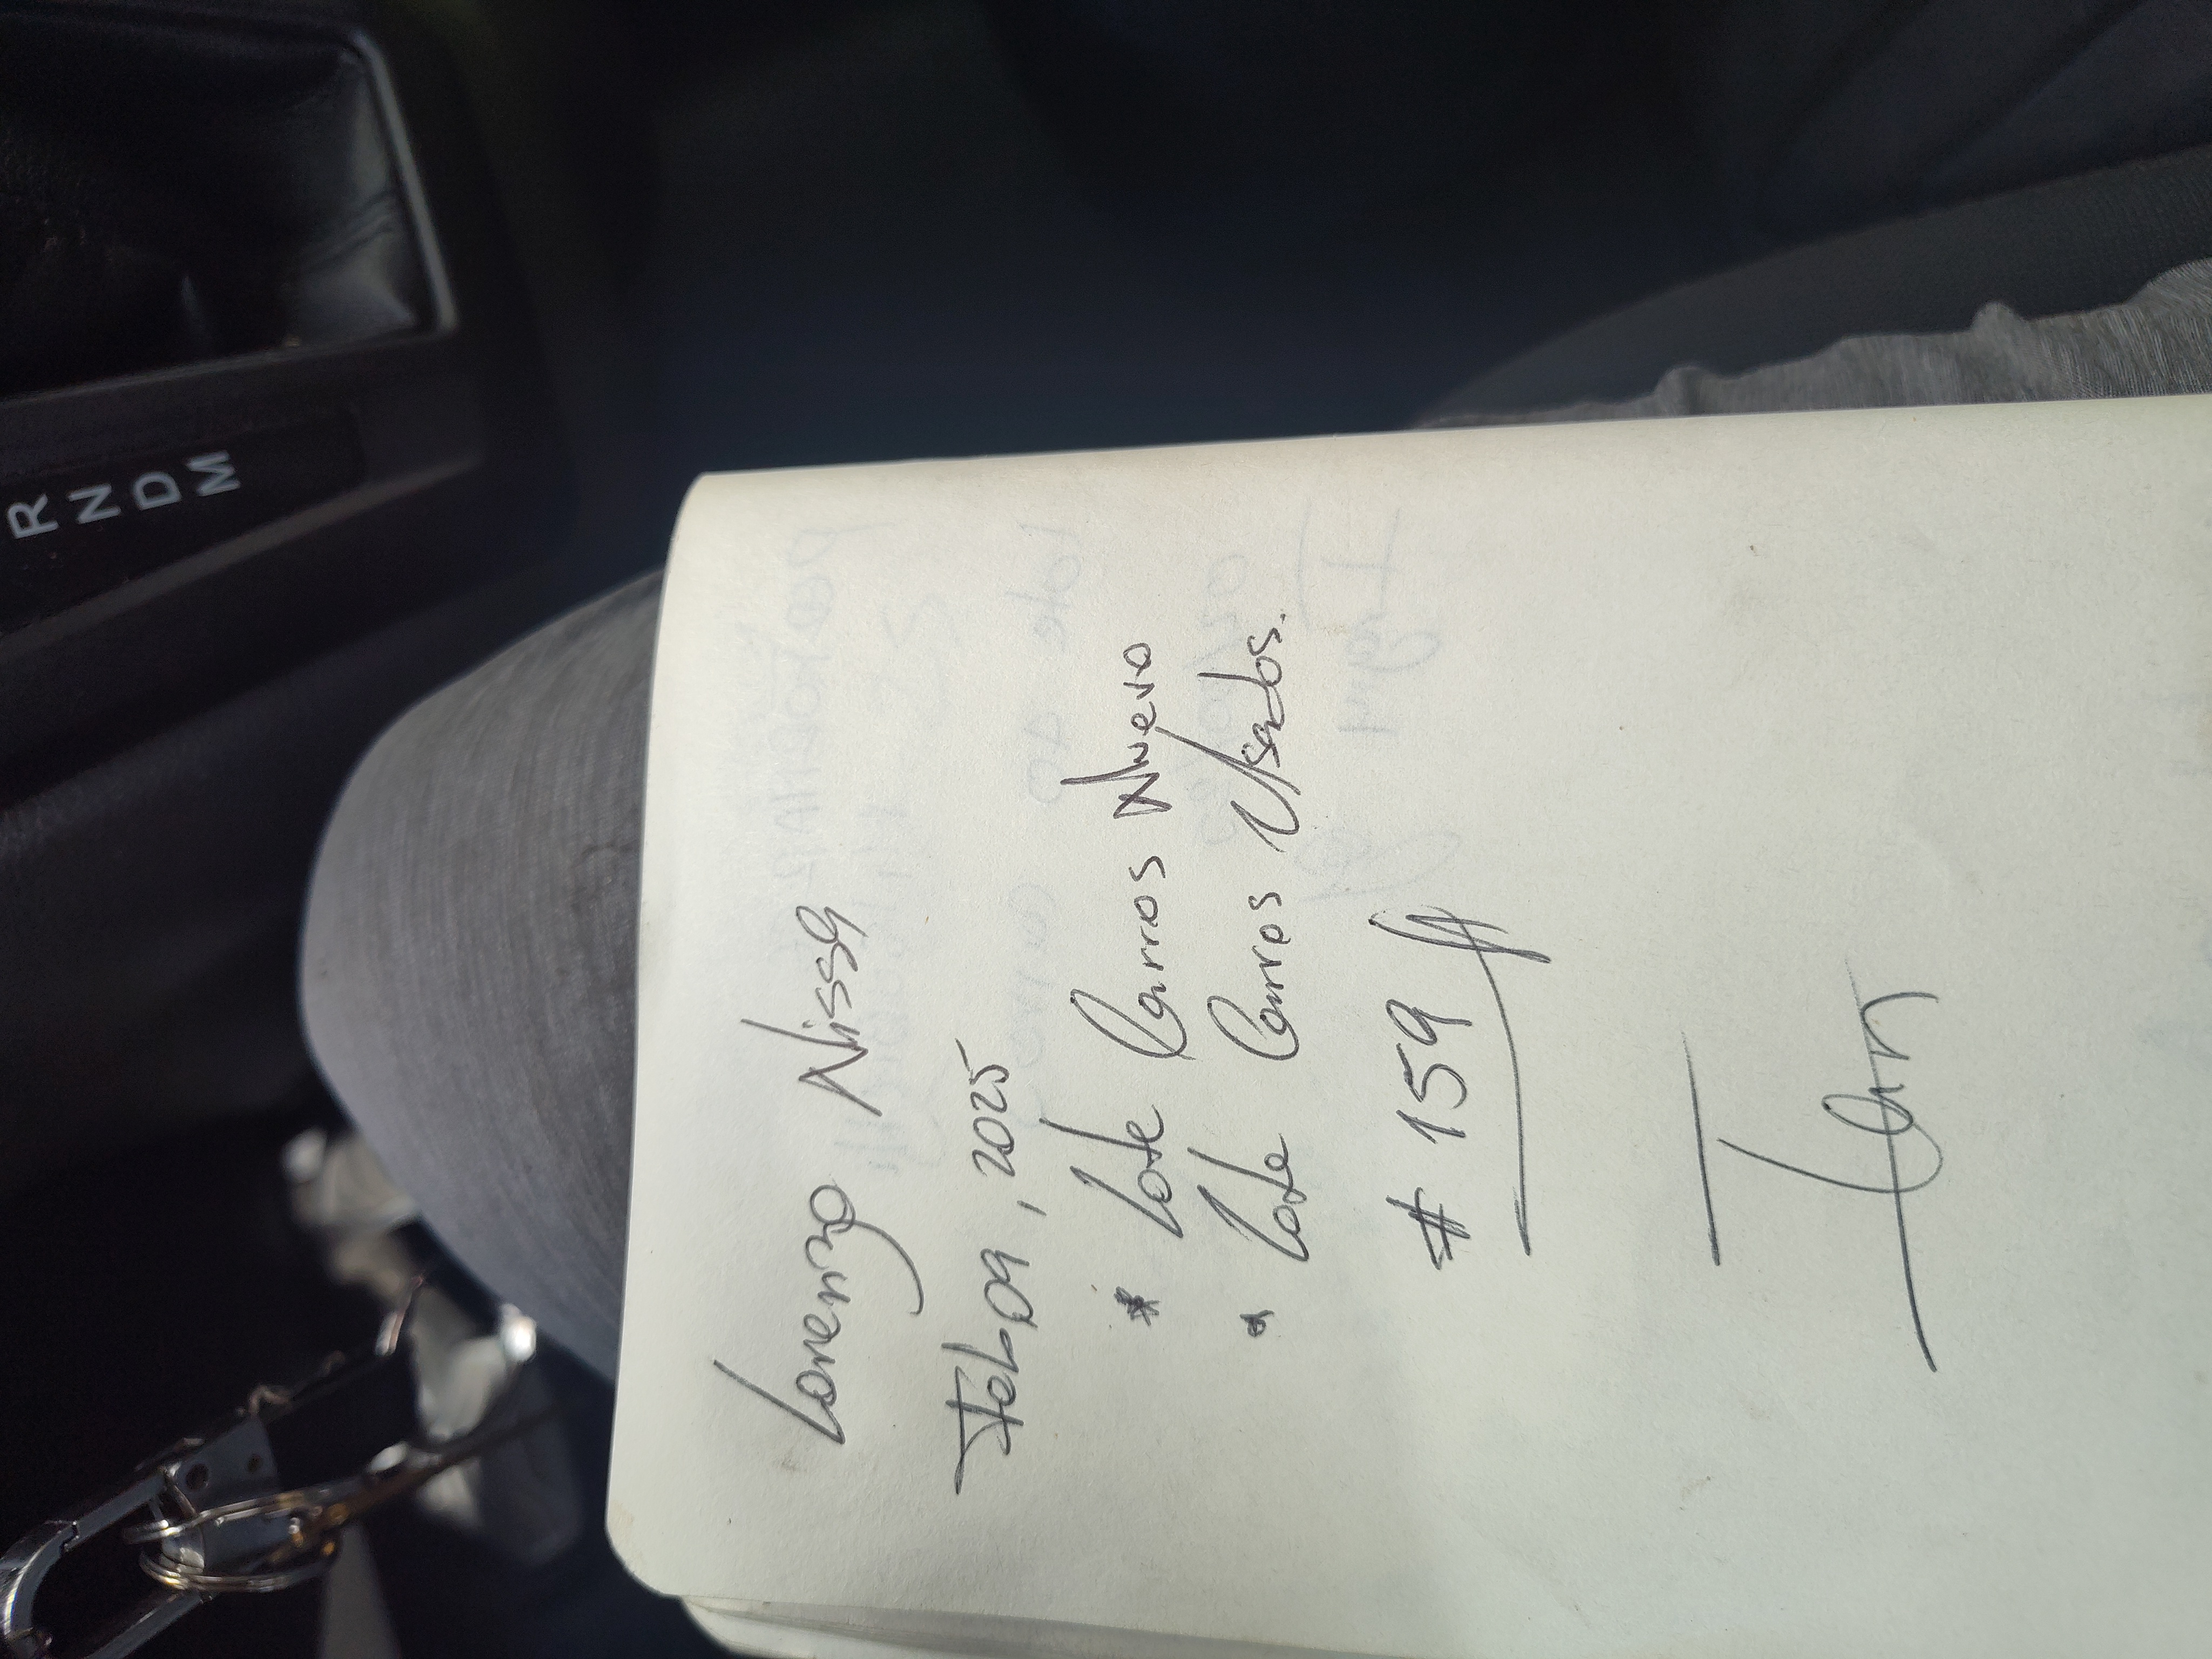 Lorenzo Nissa
Feb 09, 2025
* Lote Carros Nuevo
* Lote Carros Usados.
# 159
R
N
D
M